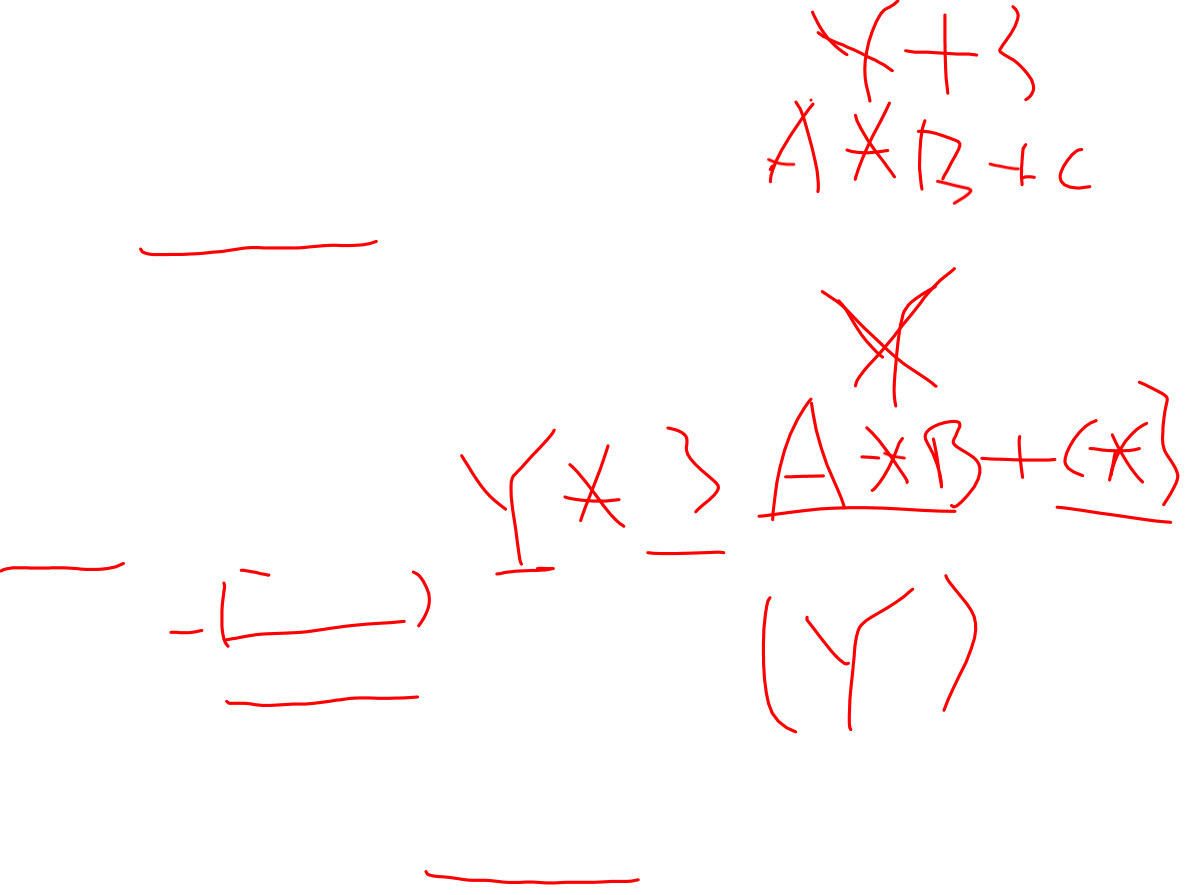 Y + 3
A * B + C
Y
Y * 3
A * B + (* 3
(Y)
- ( )